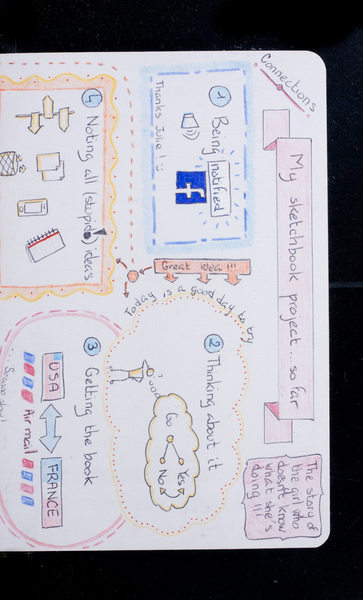 Connections
My sketchbook project... so far
The story of
the girl who
doesn't know
what she's
doing!!!
1 Being notified
f
Thanks Julie! :)
Great idea!!!
Today is a good day to try
2 Thinking about it
Go
Yes
No
3 Getting the book
USA
FRANCE
Air mail
4 Noting all (stupid) ideas